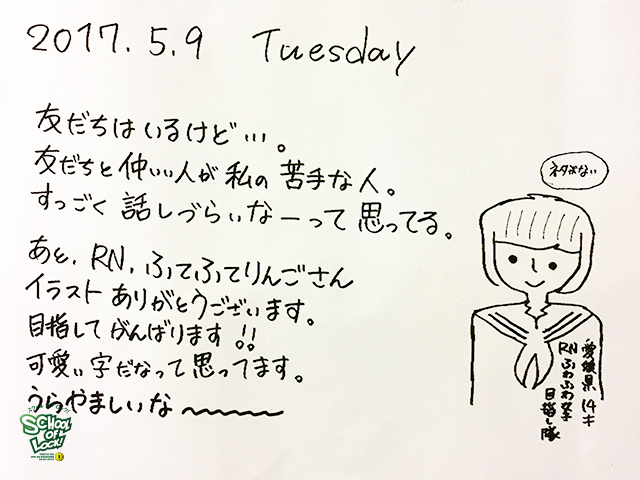 2017.5.9 Tuesday
友だちはいるけど…。
友だちと仲いい人が私の苦手な人。
すっごく話しづらいなーって思ってる。
あと、RN.ふてふてりんごさん
イラストありがとうございます。
目指してがんばります!!
可愛い字だなって思ってます。
うらやましいな〜〜〜〜
ネタがない
愛媛県 14才
RN ふわふわ女子
目指し隊
SCHOOL OF LOCK!